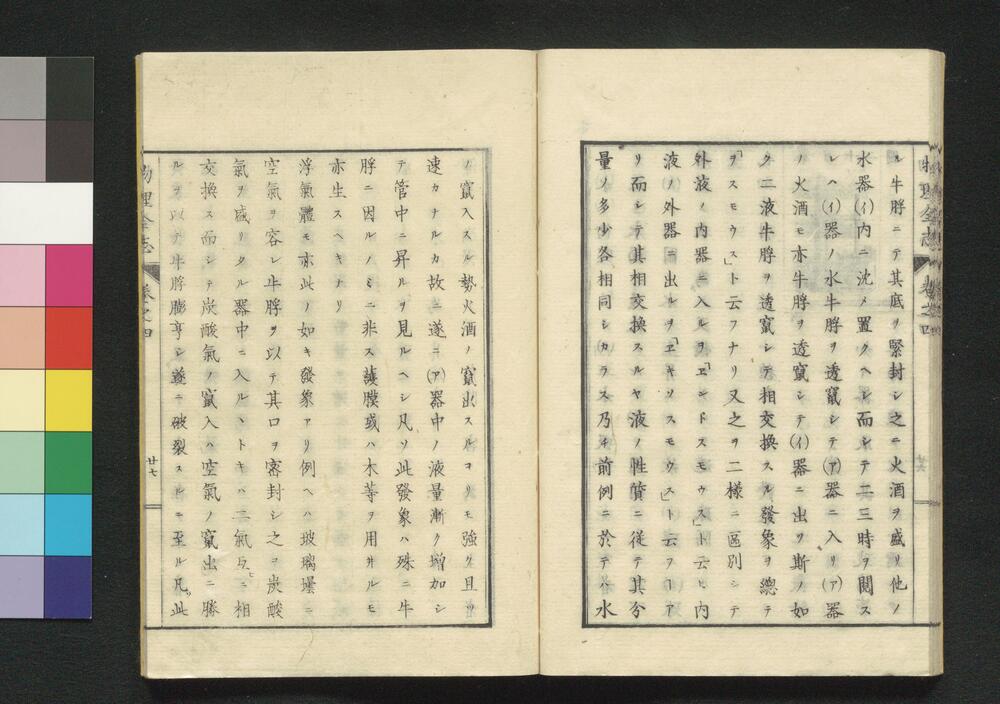 ル牛脬ニテ其底ヲ緊封シ之ニ火酒ヲ盛リ他ノ
水器(イ)内ニ沈メ置クヘシ而シテ二三時ヲ閲ス
レハ(イ)器ノ水牛脬ヲ透竄シテ(ア)器ニ入リ(ア)器
ノ火酒モ亦牛脬ヲ透竄シテ(イ)器ニ出ツ斯ノ如
ク二液牛脬ヲ透竄シテ相交換スル發象ヲ總テ
「ヲスモウス」ト云フナリ又之ヲ二樣ニ區別シテ
外液ノ内器ニ入ルヲ「エンドスモウス」ト云ヒ内
液ノ外器ニ出ルヲ「エキソスモウス」ト云フヿア
リ而シテ其相交換スルヤ液ノ性質ニ従テ其分
量ノ多少各相同シカラス乃チ前例ニ於テハ水
物理全志 卷之四
ノ竄入スル勢火酒ノ竄出スルヨリモ強ク且ツ
速カナルカ故ニ遂ニ(ア)器中ノ液量漸ク增加シ
テ管中ニ昇ルヲ見ルヘシ凡ソ此發象ハ殊ニ牛
脬ニ因ルノミニ非ス護膜或ハ木等ヲ用井ルモ
亦生スヘキナリ
浮氣體モ亦此ノ如キ發象アリ例ヘハ玻璃壜ニ
空氣ヲ容レ牛脬ヲ以テ其口ヲ密封シ之ヲ炭酸
氣ヲ盛リタル器中ニ入ルヽトキハ二氣互ヒニ相
交換ス而シテ炭酸氣ノ竄入ハ空氣ノ竄出ニ勝
ルヲ以テ牛脬膨亨シ遂ニ破裂スルニ至ル凡ソ此
物理全志 卷之四
廿七